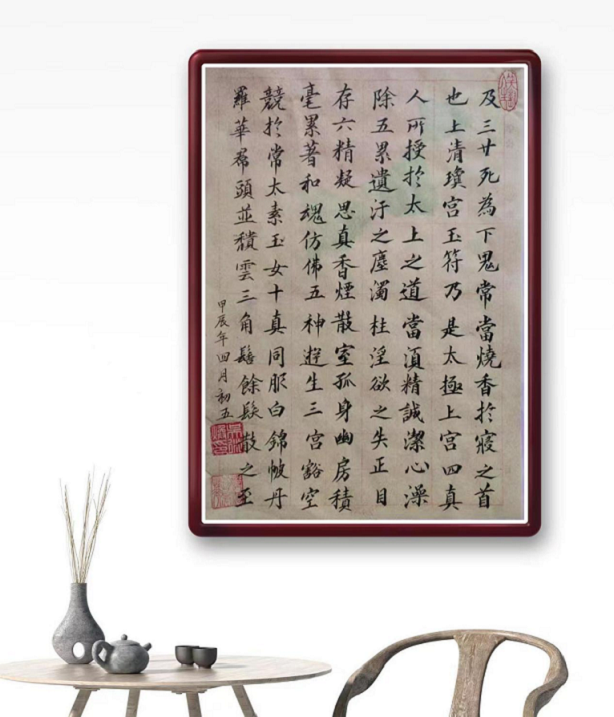 及三廿死為下鬼常當燒香於寢之首
也上清瓊宮玉符乃是太極上宮四真
人所授於太上之道當湏精誠潔心澡
除五累遺汙之塵濁柱淫欲之失正目
存六精凝思真香煙散室孤身幽房積
毫累著和魂仿佛五神遊生三宮豁空
競於常太素玉女十真同服白錦帔丹
羅華帬頭並穨雲三角髻餘髮散之至
甲辰年四月初五